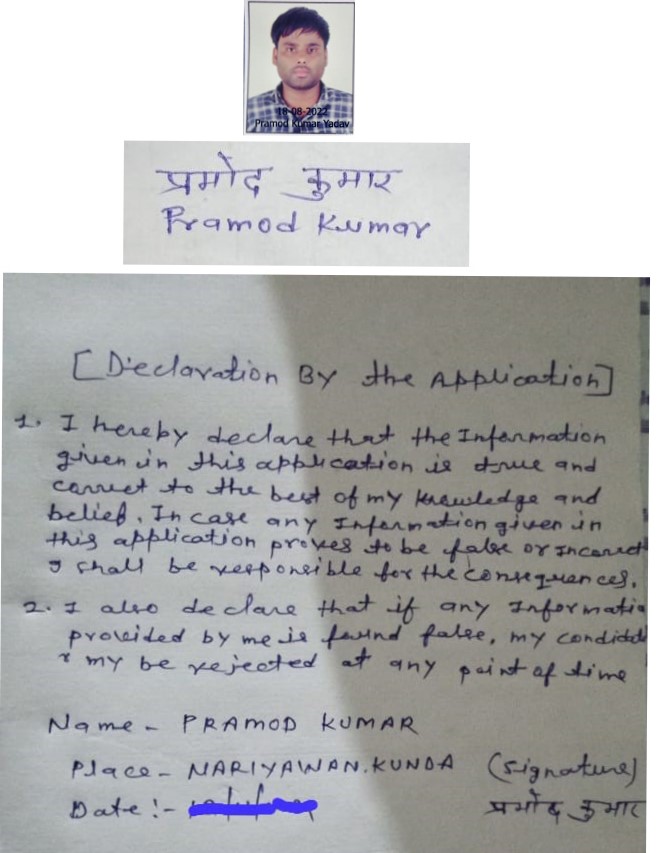 18-08-2022
Pramod Kumar Yadav
प्रमोद कुमार
Pramod Kumar
[Declaration By the Application]
1. I hereby declare that the Information
given in this application is true and
correct to the best of my knowledge and
belief. In case any Information given in
this application proves to be false or Incorrect
I shall be responsible for the consequences.
2. I also declare that if any Informatio
provided by me is found false, my condidat
r my be rejected at any point of time
Name - PRAMOD KUMAR
Place - NARIYAWAN.KUNDA (Signature)
Date :- प्रमोद कुमार